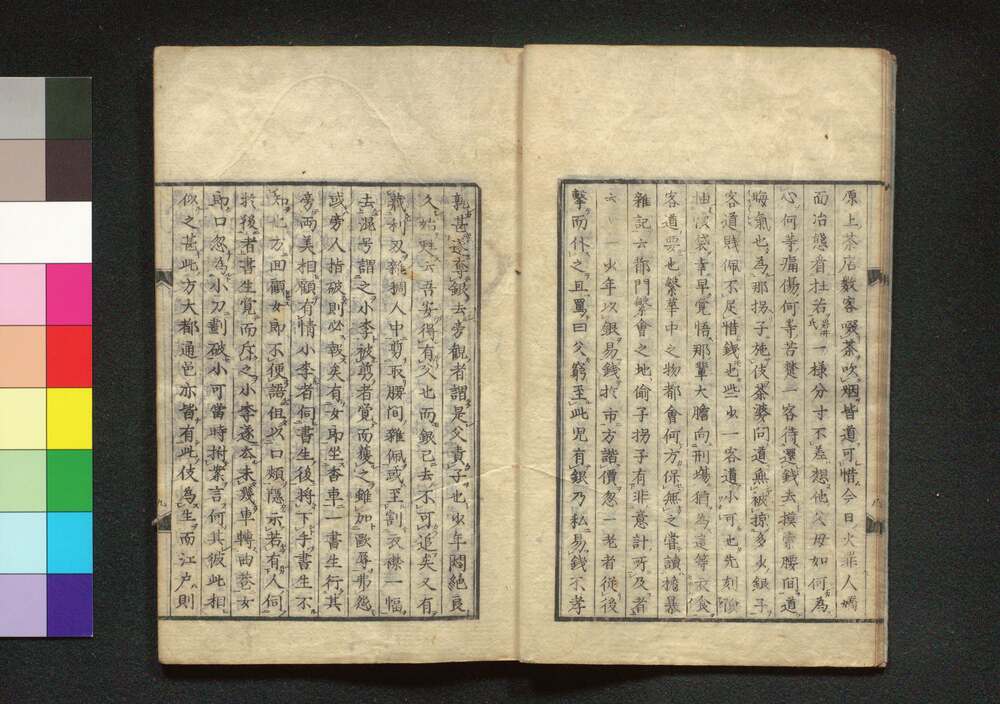 原上茶店數客啜茶吹烟皆道可惜今日火非人嬌
面冶態看杜若岩井氏一様分寸不差想他父母如何為
心何等痛傷何等苦楚一客待還錢去摸索腰間道
晦氣也為那拐子施伎茶婆問道無被掠多少銀子
客道賤佩不足惜錢也些少一客道小可也先刻
袋幸早覺悟那輩大膽向刑場猶為這等衣食
客道惡也繁華中之物都會何方保無之嘗讀檐暴
雜記云都門繁會之地偷子拐子有非意計所及者
一少年以銀易錢於市方諧價忽一老者從後
擊而仆之且罵曰父窮至此児有銀乃私易錢不孝
孰甚遂奪銀去旁観者謂是父責子也少年悶絶良
久始甦云吾安得有父也而銀已去不可追矣又有
利刃雜稠人中剪取腰間雜佩或至割衣襟一幅
去混号謂之小李被剪者覚而獲之雖加歐辱弗怨
或旁人指破則必報矣有女郎坐香車一書生行其
旁両美相顧有情小李者伺書生後将下手書生不
知也方回顧女郎不便語但以口頬隱示若有人伺
於後者書生覺而斥之小李遂去未幾車轉曲巷女
郎口忽為小刀劃破小可當時拊案言何其彼此相
似之甚此方大都通邑亦皆有此伎為生而江戸則
九